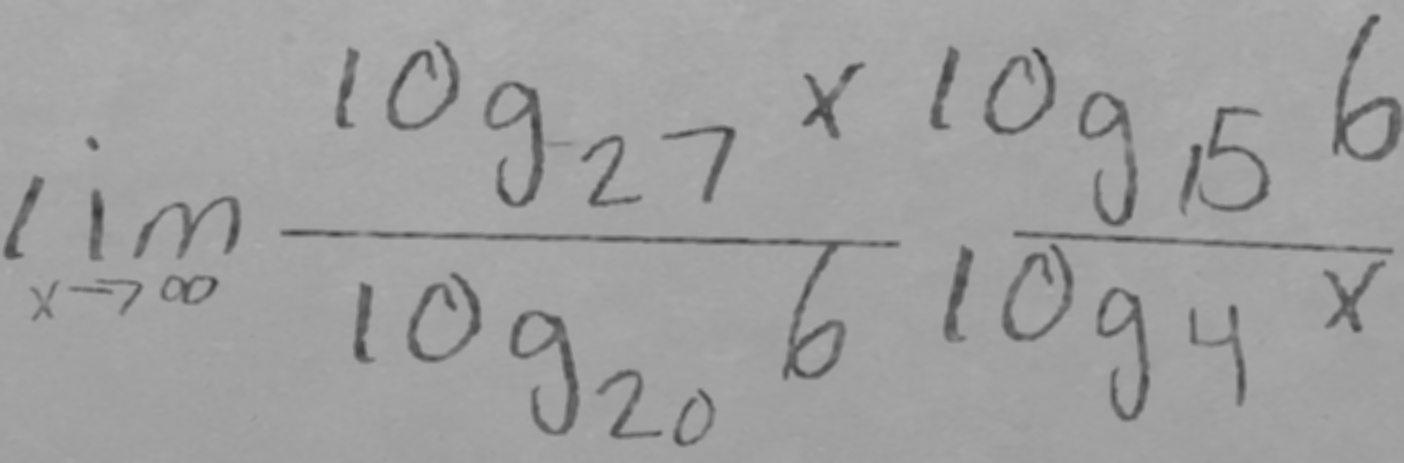 \lim_{x \to \infty} \frac{\log_{27} x}{\log_{20} 6} \frac{\log_{15} 6}{\log_{4} x}